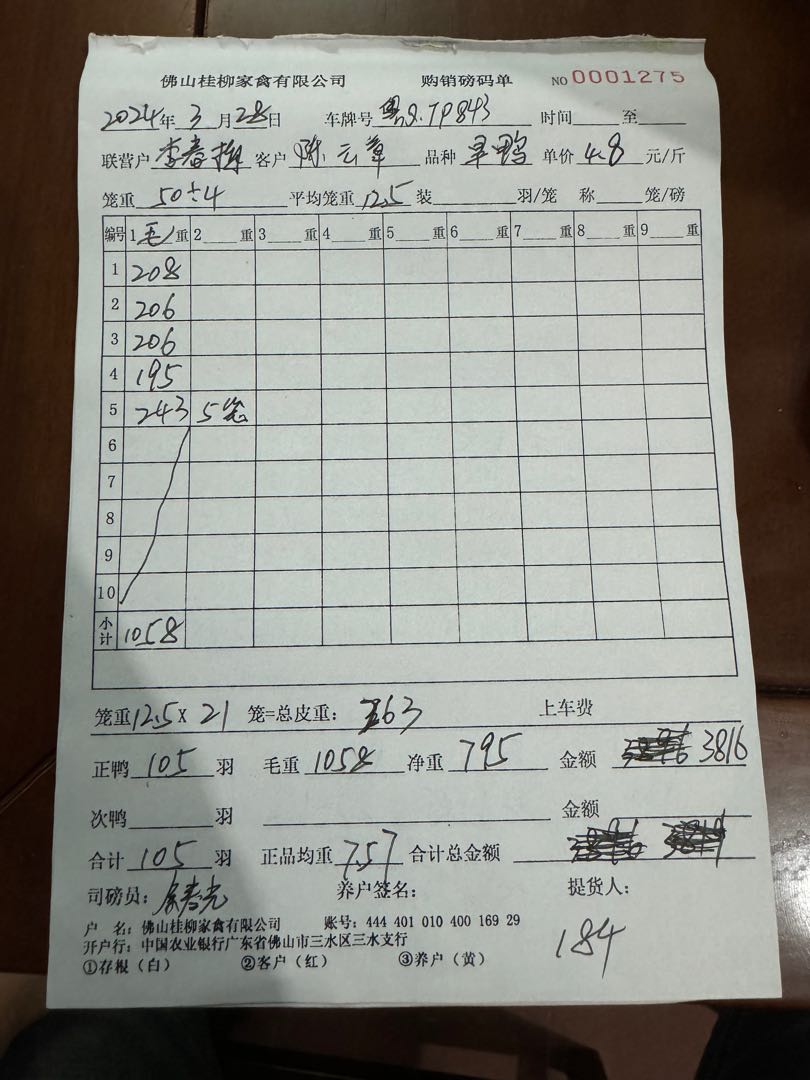 佛山桂柳家禽有限公司 购销磅码单 NO 0001275
2024年 3 月 28日 车牌号 粤Q.TP843 时间 至
联营户 李春梅 客户 陈云章 品种 旱鸭 单价 4.8 元/斤
笼重 50÷4 平均笼重 12.5 装 羽/笼 称 笼/磅
编号 1 毛 重 2 重 3 重 4 重 5 重 6 重 7 重 8 重 9 重
1 208
2 206
3 206
4 195
5 243 5笼
6
7
8
9
10
小计 1058
笼重12.5 X 21 笼=总皮重: 263 上车费
正鸭 105 羽 毛重 1058 净重 795 金额 3816
次鸭 羽 金额
合计 105 羽 正品均重 7.57 合计总金额
司磅员: 养户签名: 提货人:
户 名: 佛山桂柳家禽有限公司 账号: 444 401 010 400 169 29
开户行: 中国农业银行广东省佛山市三水区三水支行
184
①存根（白） ②客户（红） ③养户（黄）